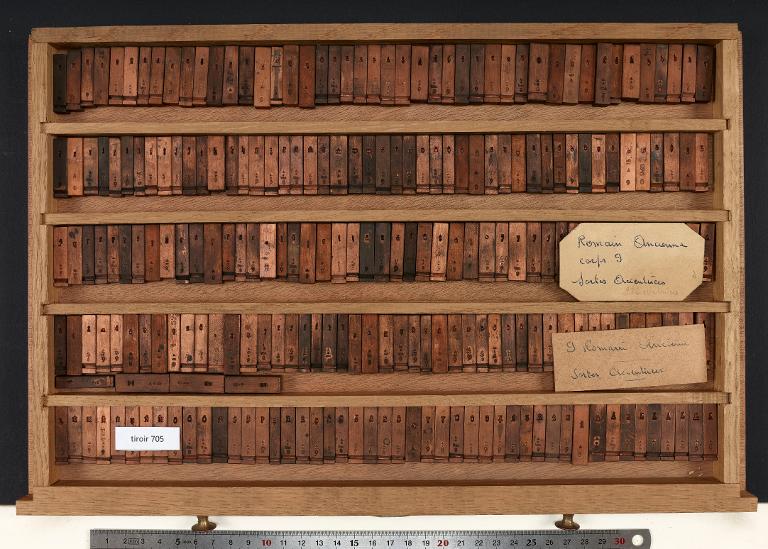 Romain Ancienne
corps 9
Sortes Accentuées
9 Romain Ancienne
Sortes Accentuées
tiroir 705
1 2 3 4 5 6 7 8 9 10 11 12 13 14 15 16 17 18 19 20 21 22 23 24 25 26 27 28 29 30